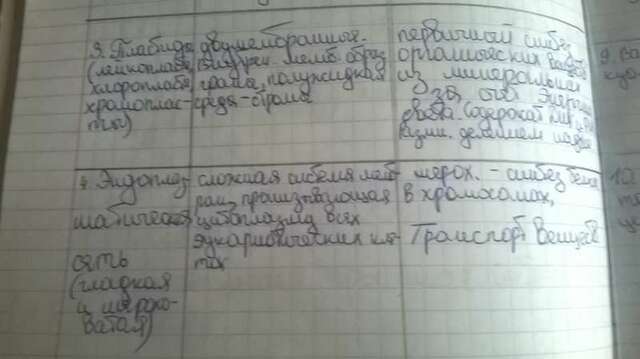 3. Пластиды
(лейкопласты
хлоропласты
хромоплас-
ты)
двумембранные.
внутрен. мемб. образ
граны, полужидкая
среда - строма
первичный синтез
органических вещ
из минеральных
за счёт энергии
света. содержат днк и
разм. делением
4. Эндоплаз-
матическая
сеть
(гладкая
и шерохо-
ватая)
сложная система мемб-
ран, пронизывающая
цитоплазму всех
эукариотических кле-
ток
шерох. - синтез белка
в хромосомах,
Транспорт веществ
9 Ва
10